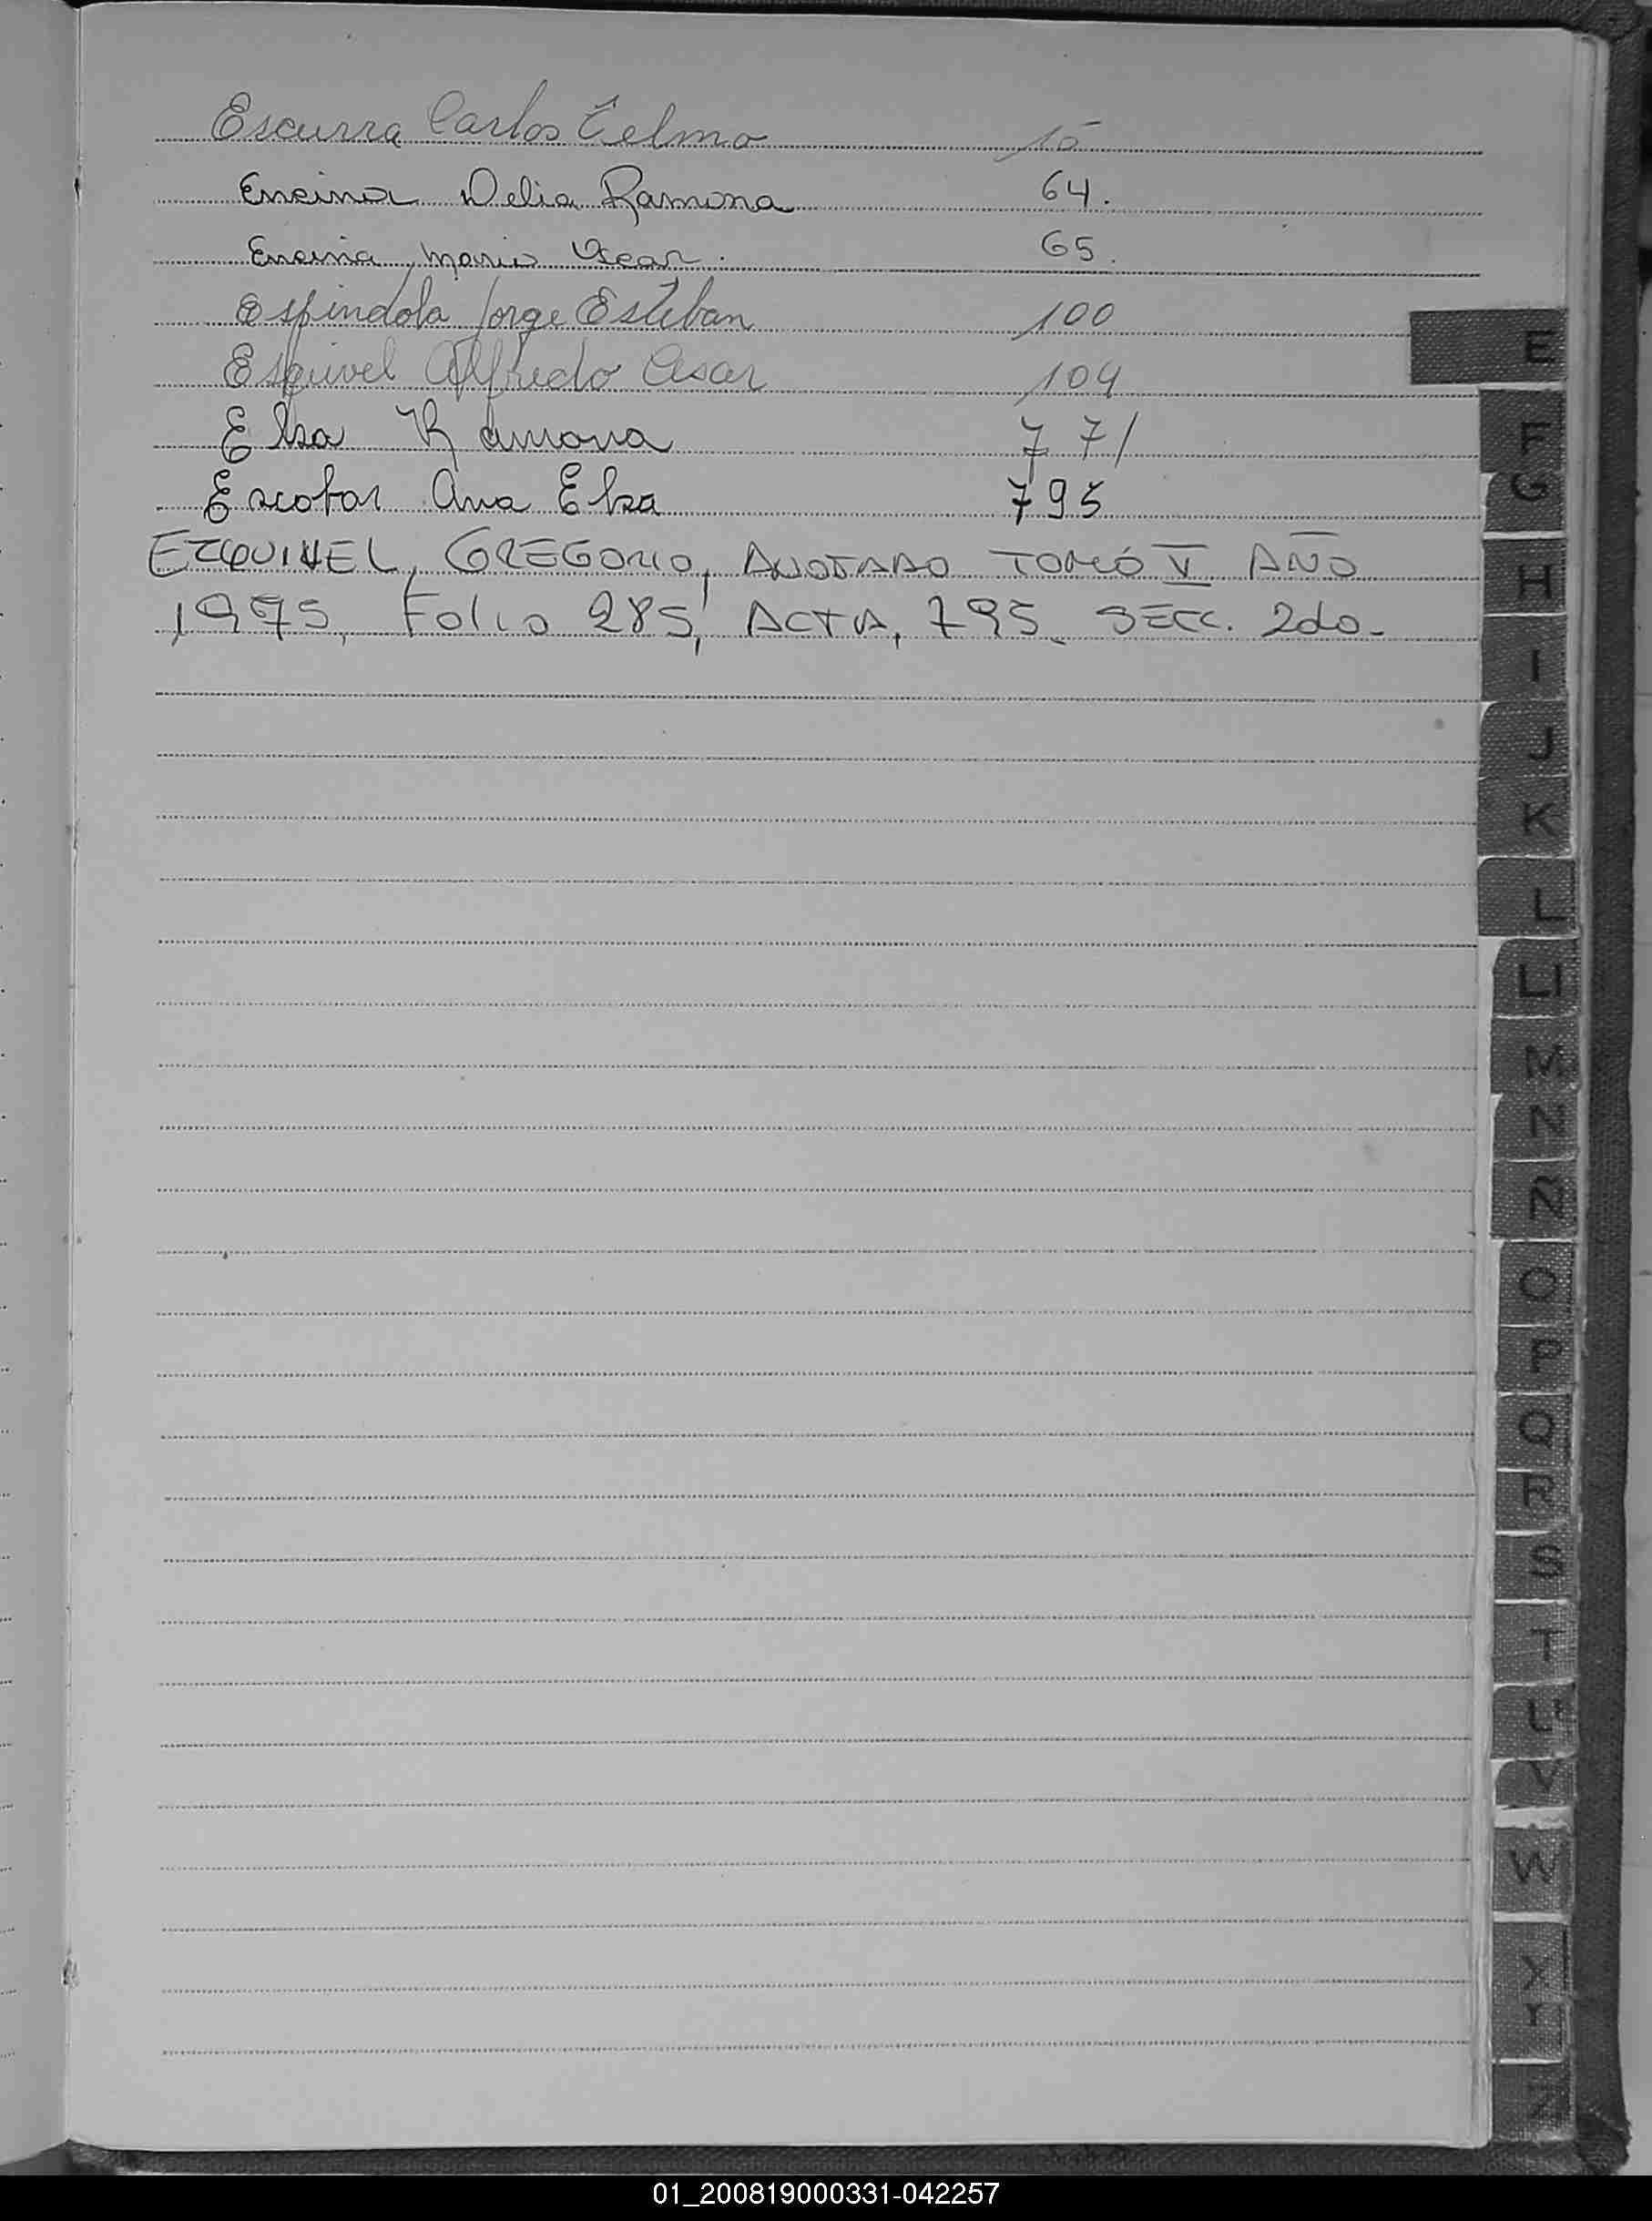 Escurra Carlos Telmo 15
Encina Delia Ramona 64.
Encina, Mario Oscar. 65.
Espindola Jorge Esteban 100
Esquivel Alfredo Cesar 104
Elsa Ramona 771
Escobar Ana Elsa 795
EZQUIVEL, GREGORIO, ANOTADO TOMO V AÑO
1975, Folio 285, ACTA, 795. SECC. 2do.
E
F
G
H
I
J
K
L
LL
M
N
Ñ
O
P
Q
R
S
T
U
V
W
X
Y
Z
01_200819000331-042257